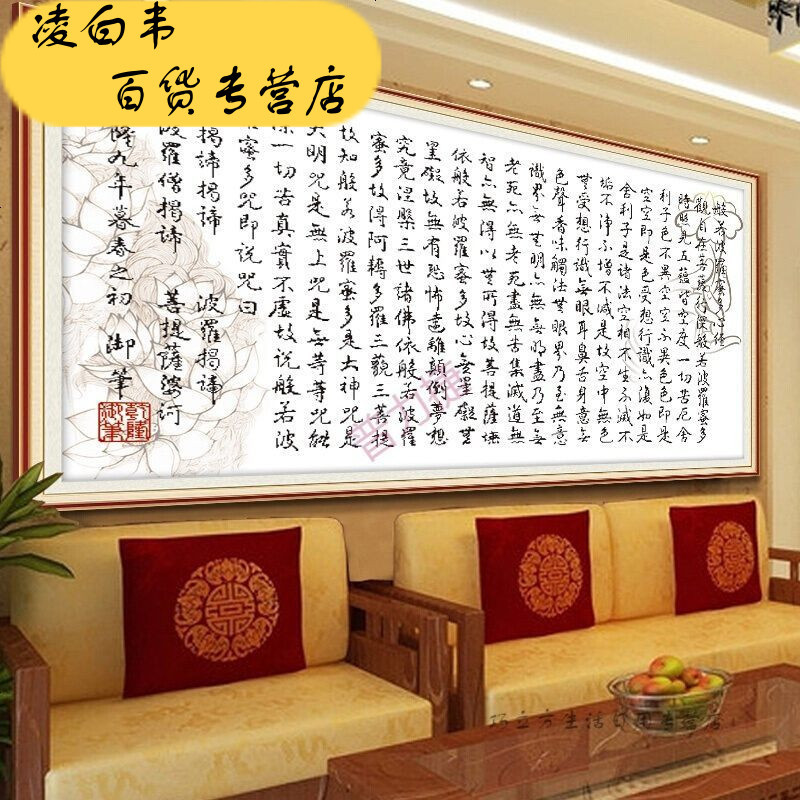 凌白韦
百货专营店
般若波羅蜜多心經
觀自在菩薩行深般若波羅蜜多
時照見五蘊皆空度一切苦厄舍
利子色不異空空不異色色即是
空空即是色受想行識亦復如是
舍利子是諸法空相不生不滅不
垢不淨不增不減是故空中無色
無受想行識無眼耳鼻舌身意無
色聲香味觸法無眼界乃至無意
識界無無明亦無無明盡乃至無
老死亦無老死盡無苦集滅道無
智亦無得以無所得故菩提薩埵
依般若波羅蜜多故心無罣礙無
罣礙故無有恐怖遠離顛倒夢想
究竟涅槃三世諸佛依般若波羅
蜜多故得阿耨多羅三藐三菩提
故知般若波羅蜜多是大神咒是
大明咒是無上咒是無等等咒能
除一切苦真實不虛故說般若波
羅蜜多咒即說咒曰
揭諦揭諦 波羅揭諦
波羅僧揭諦 菩提薩婆訶
隆九年暮春之初 御筆
乾隆御筆
巧立方生活百货专营店